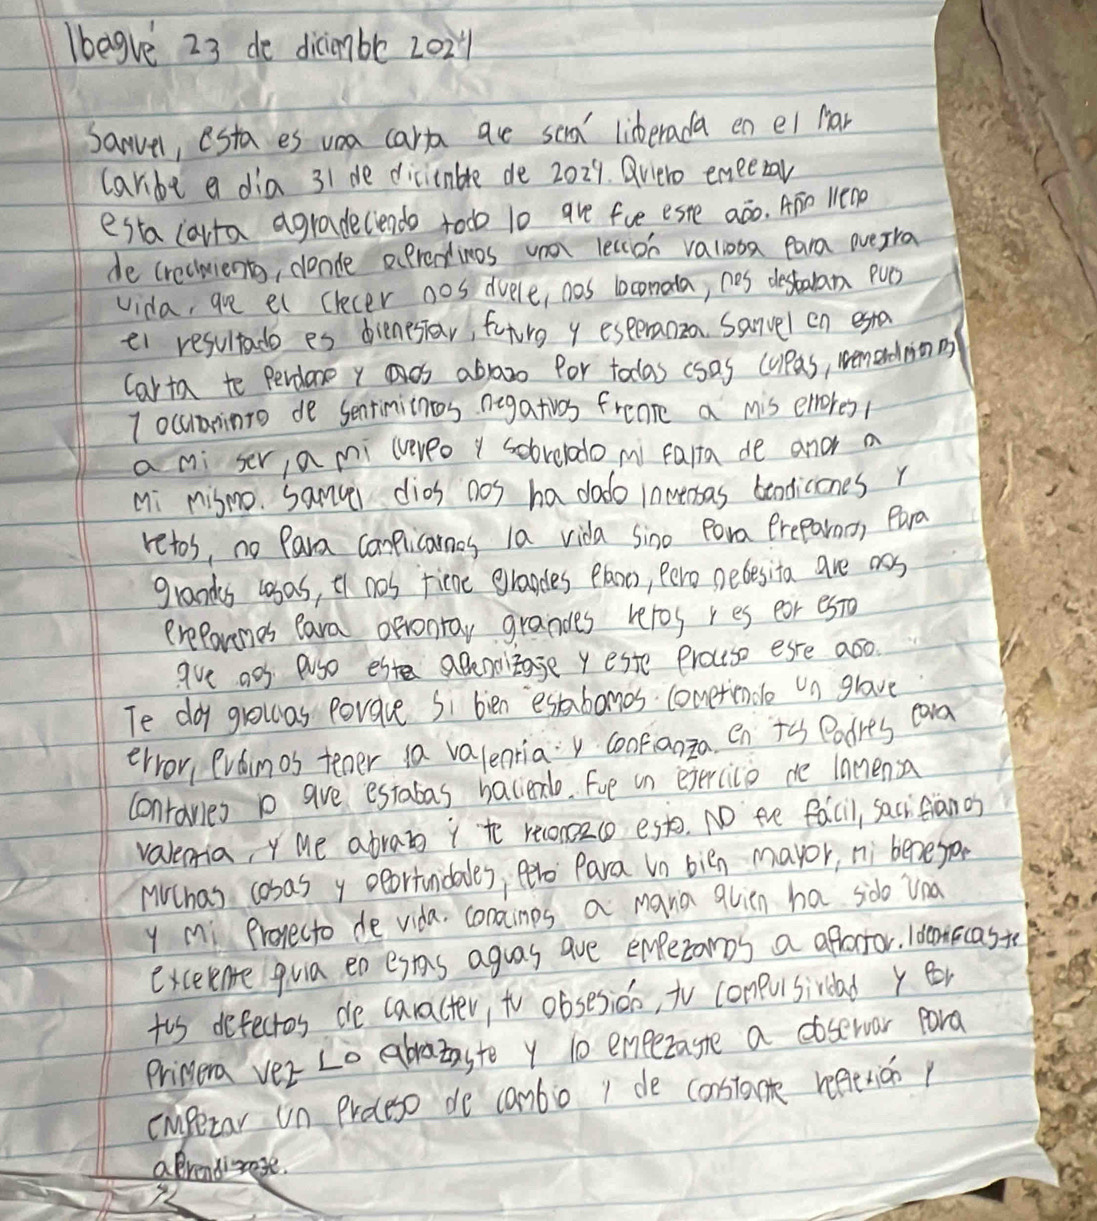 Ibagué 23 de diciembre 2024
Samuel, esta es una carta que será liberada en el Mar
Caribe a día 31 de diciembre de 2024. Quiero empezar
esta carta agradeciendo todo lo que fue este año. Año lleno
de crecimiento, donde aprendimos una lección valiosa para nuestra
vida, que el crecer nos duele, nos incomoda, nos
el resultado es bienestar, futuro y esperanza. Samuel en esta
carta te perdono y abrazo por todas esas culpas,
y de sentimientos negativos frente a mis errores,
a mi ser, a mi cuerpo y sobretodo mi falta de amor a
mi mismo. Samuel dios nos ha dado inmensas bendiciones y
retos, no para complicarnos la vida sino para prepararnos para
grandes cosas, el nos tiene grandes planes, pero nebesita que nos
preparemos para afrontar grandes retos y es por esto
que nos puso este aprendizaje y este proceso este año.
Te doy gracias porque si bien estabamos cometiendo un grave
error, pudimos tener la valentia y confianza en tus padres para
contarles lo que estabas haciendo. Fue un ejercicio de inmensa
valentia, y me abrazo y te reconozco esto. NO fue fácil, sacrificamos
muchas cosas y oportundades, pero para un bien mayor, mi
y mi proyecto de vida. conocimos a maria quien ha sido una
excelente guia en estas aguas que empezamos a afrontar. Identificaste
tus defectos de caracter, tu obsesión, tu compulsividad y por
primera vez Lo abrazaste y lo empezaste a observar para
empezar un proceso de cambio y de constante reflexión y
aprendizaje.